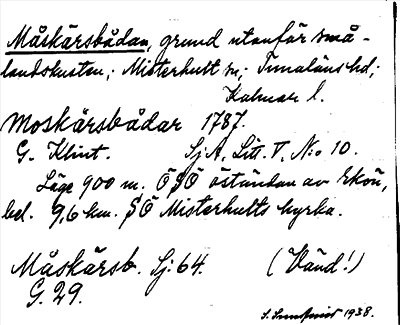 Måskärsbådan, grund utanför små-
landskusten; Misterhult sn; Tunaläns hd;
Kalmar l.
Moskärsbådar 1787.
G. Klint. SjA, Litt. V, N:o 10.
Läge 900 m. ÖSÖ östandan av Ekön,
bel. 9,6 km. SÖ Misterhults kyrka.
Måskärsb. Sj: 64. (Vänd!)
G. 29.
1938.